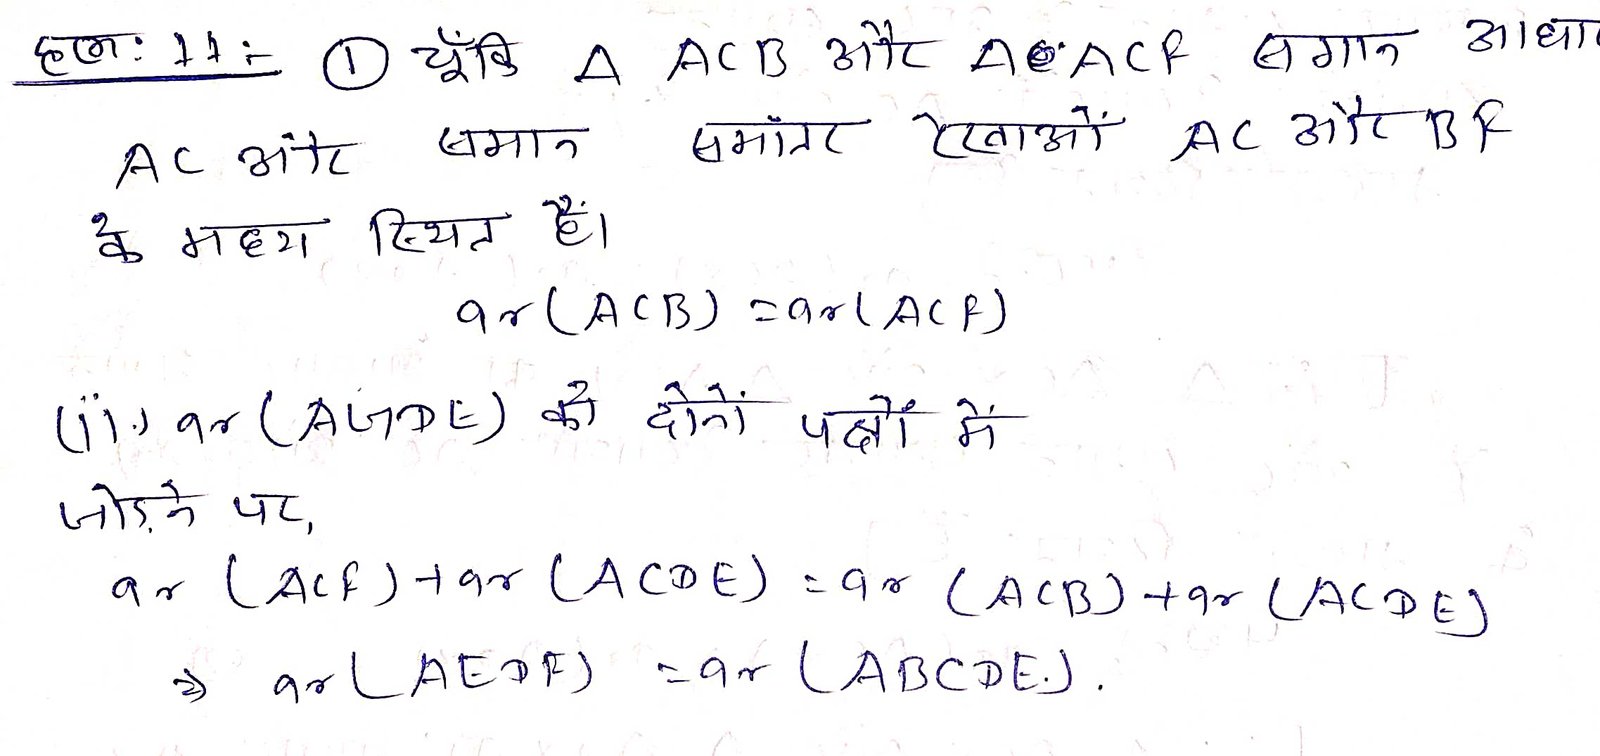 हल: 11:- ① चूँकि Δ ACB और Δ ACF समान आधार
AC और समान समांतर रेखाओं AC और BF
के मध्य स्थित हैं।
ar (ACB) = ar (ACF)
(ii) ar (ACDE) को दोनों पक्षों में
जोड़ने पर,
ar (ACF) + ar (ACDE) = ar (ACB) + ar (ACDE)
⇒ ar (AEDF) = ar (ABCDE).